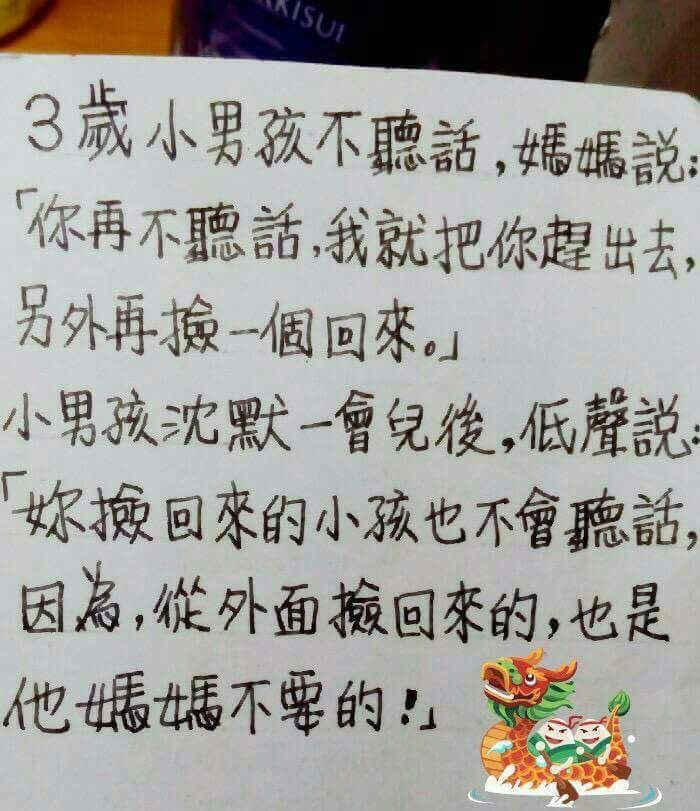 KKISUI
3歲小男孩不聽話,媽媽說:
「你再不聽話,我就把你趕出去,
另外再撿一個回來。」
小男孩沈默一會兒後,低聲說:
「妳撿回來的小孩也不會聽話,
因為,從外面撿回來的,也是
他媽媽不要的!」